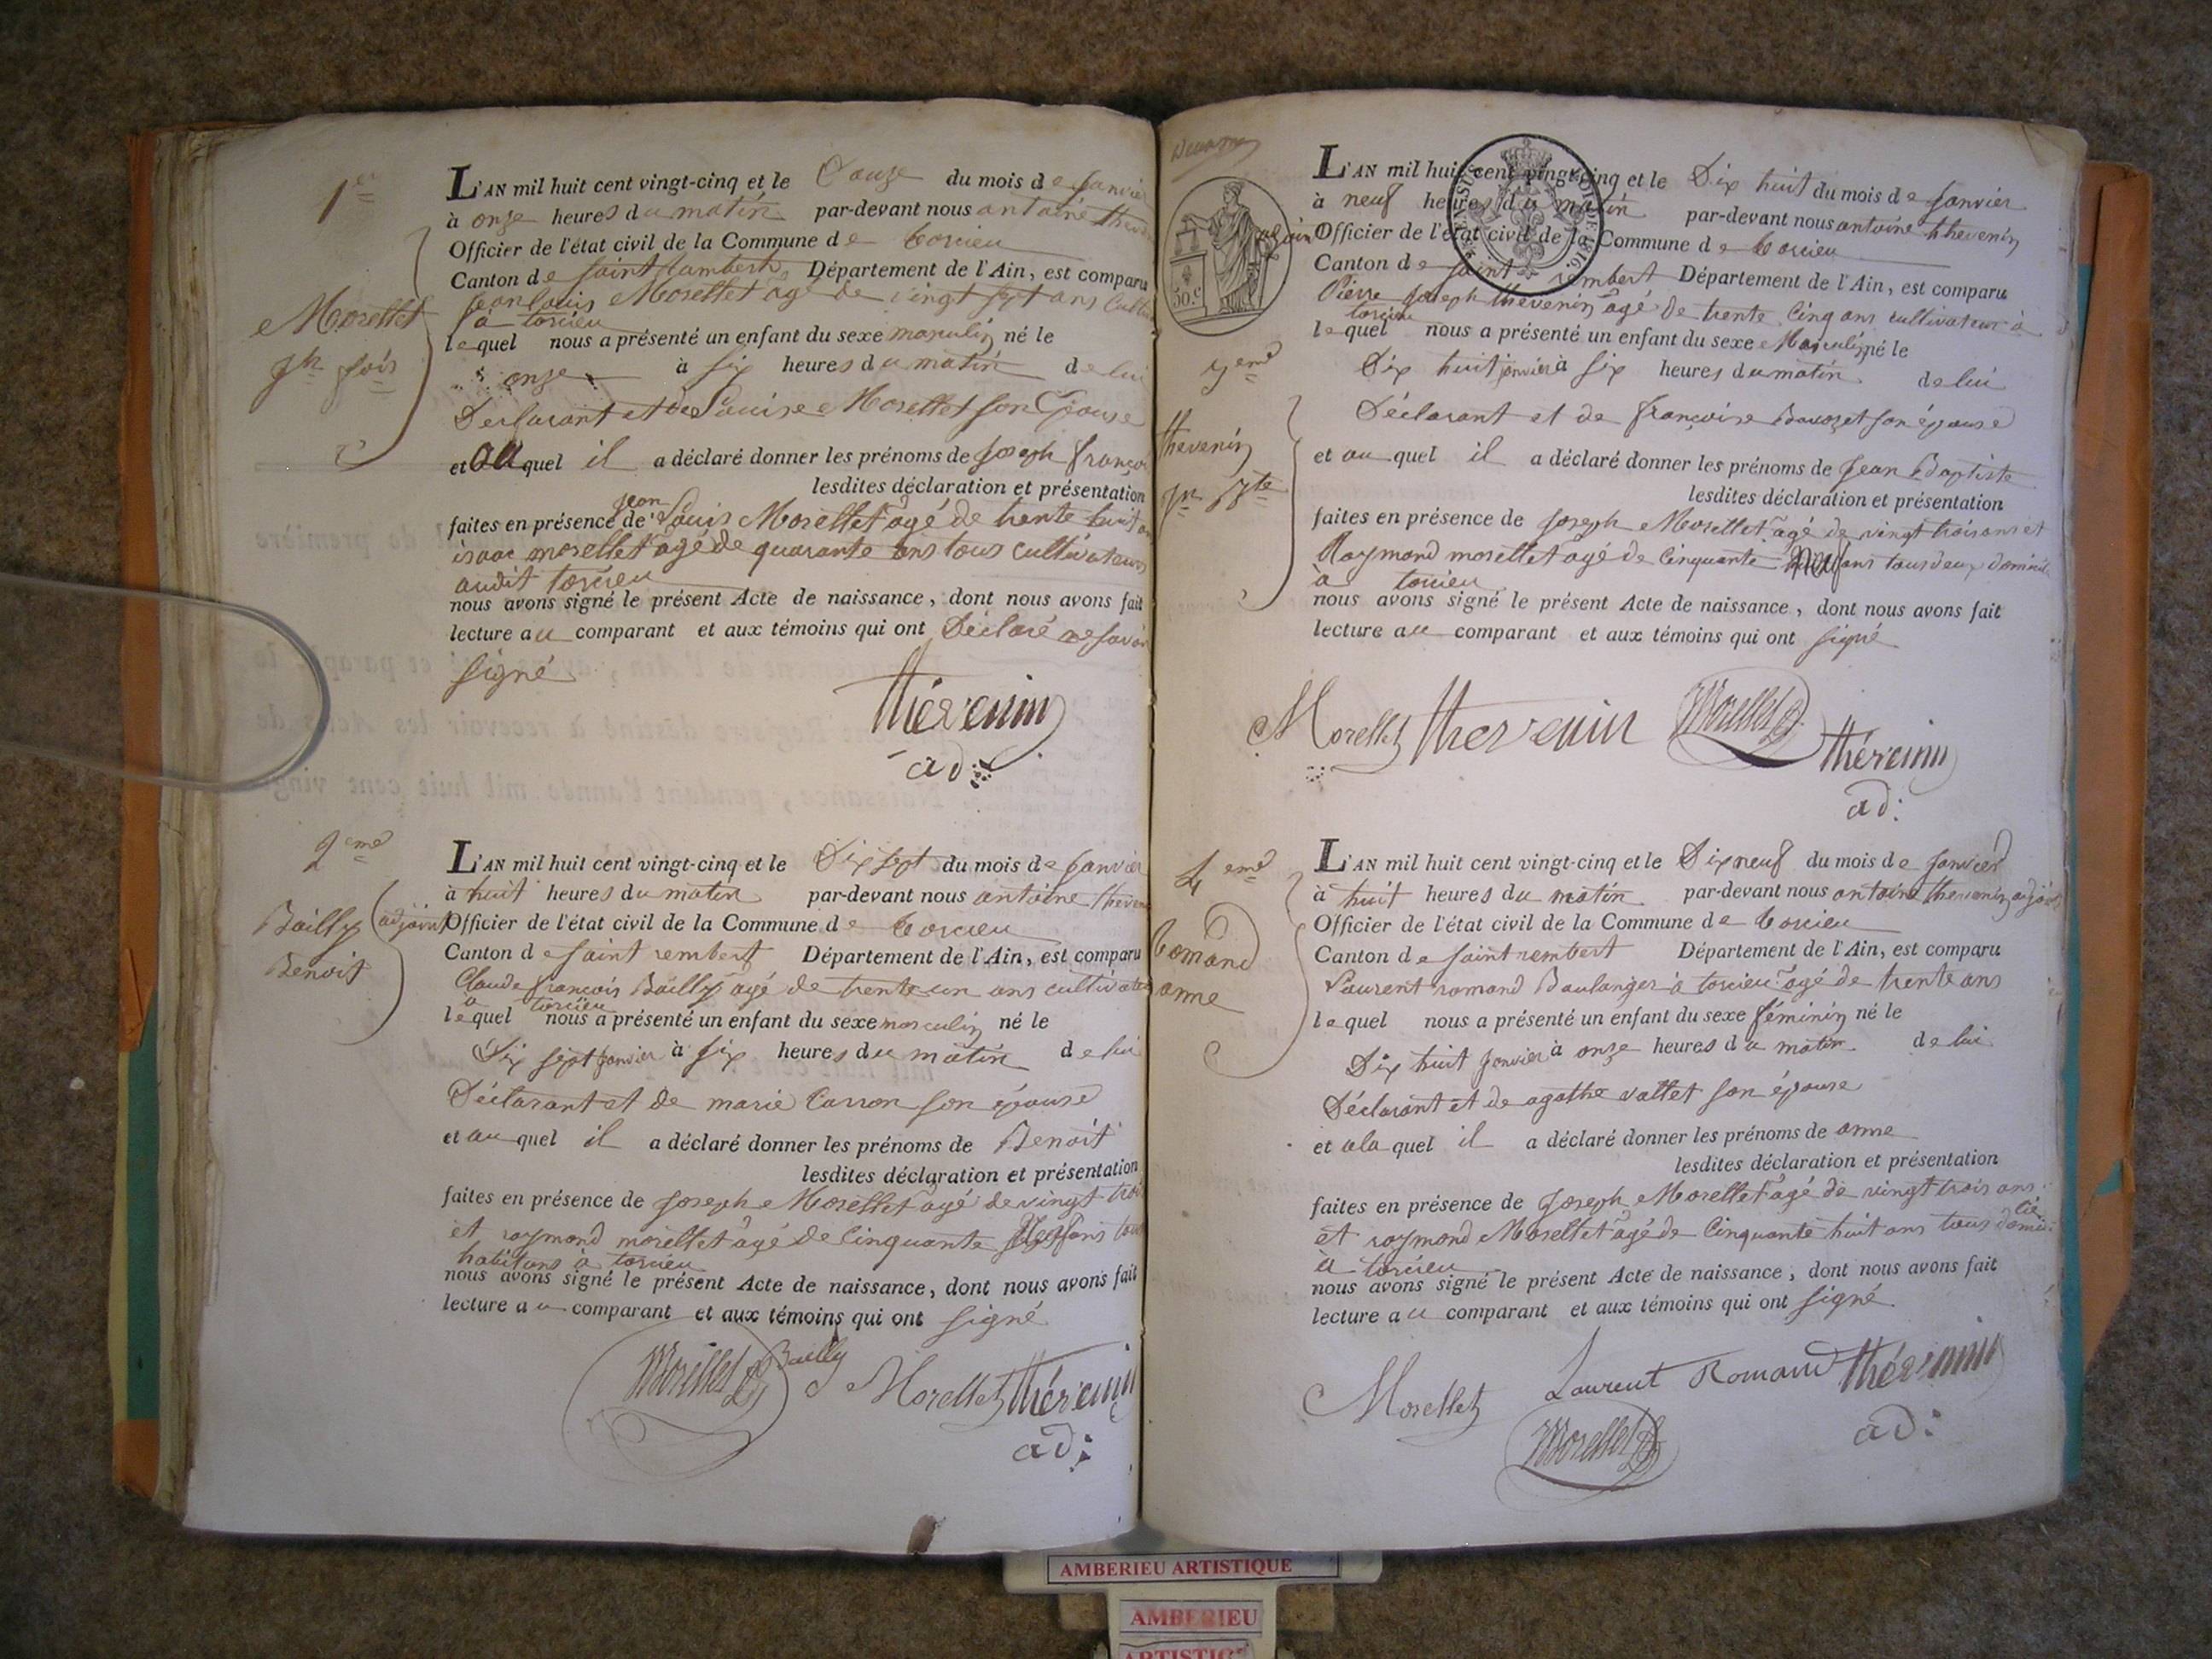 1er
Morellet
jh fois
L'AN mil huit cent vingt-cinq et le Douze du mois de janvier
à onze heures du matin par-devant nous antoine theven
Officier de l'état civil de la Commune de torcieu
Canton de saint rambert, Département de l'Ain, est comparu
jean Louis Morellet agé de vingt sept ans Cultiv
à torcieu
lequel nous a présenté un enfant du sexe masculin né le
onze à six heures du matin de lui
Déclarant et de Louise Morellet son Epouse
et au quel il a déclaré donner les prénoms de joseph françois
lesdites déclaration et présentation
faites en présence de jean Louis Morellet agé de trente huit an
isaac morellet agé de quarante ans tous cultivateurs
audit torcieu
nous avons signé le présent Acte de naissance, dont nous avons fait
lecture au comparant et aux témoins qui ont Déclaré ne savoir
signé
thévenin
ad:
2eme
Bailly
Benoit
L'AN mil huit cent vingt-cinq et le Dix sept du mois de janvier
à huit heures du matin par-devant nous antoine theven
adjoint Officier de l'état civil de la Commune de torcieu
Canton de saint rembert Département de l'Ain, est comparu
Claude françois Bailly agé de trente un ans cultivateur
à torcieu
lequel nous a présenté un enfant du sexe masculin né le
Dix sept janvier à six heures du matin de lui
Déclarant et de marie Carron son épouse
et au quel il a déclaré donner les prénoms de Benoit
lesdites déclaration et présentation
faites en présence de joseph Morellet agé de vingt trois
et raymond morellet agé de Cinquante ans tous
habitans à torcieu
nous avons signé le présent Acte de naissance, dont nous avons fait
lecture au comparant et aux témoins qui ont signé
Morellet Bailly Morellet thévenin
ad:
50.c
3eme
thevenin
jn Bte
L'AN mil huit cent vingt-cinq et le Dix huit du mois de janvier
à neuf heures du matin par-devant nous antoine thevenin
adjoin Officier de l'état civil de la Commune de torcieu
Canton de saint rembert Département de l'Ain, est comparu
Pierre joseph thevenin agé de trente Cinq ans cultivateur à
torcieu
lequel nous a présenté un enfant du sexe Masculin né le
Dix huit janvier à six heures du matin de lui
Déclarant et de françoise Bavozet son épouse
et au quel il a déclaré donner les prénoms de jean Baptiste
lesdites déclaration et présentation
faites en présence de joseph Morellet agé de vingt trois ans et
Raymond morellet agé de Cinquante ans tous deux domicil
à torcieu
nous avons signé le présent Acte de naissance, dont nous avons fait
lecture au comparant et aux témoins qui ont signé
Morellet thevenin Morellet
thévenin
ad:
4eme
Romand
anne
L'AN mil huit cent vingt-cinq et le Dix neuf du mois de janvier
à huit heures du matin par-devant nous antoine thevenin adjoint
Officier de l'état civil de la Commune de torcieu
Canton de saint rembert Département de l'Ain, est comparu
Laurent romand Boulanger à torcieu agé de trente ans
lequel nous a présenté un enfant du sexe féminin né le
Dix huit janvier à onze heures du matin de lui
Déclarant et de agathe vallet son épouse
et a la quel il a déclaré donner les prénoms de anne
lesdites déclaration et présentation
faites en présence de joseph Morellet agé de vingt trois ans
et raymond Morellet agé de Cinquante huit ans tous domicilié
à torcieu
nous avons signé le présent Acte de naissance, dont nous avons fait
lecture au comparant et aux témoins qui ont signé
Morellet Laurent Romand thévenin
Morellet ad:
AMBERIEU ARTISTIQUE
AMBERIEU
ARTISTIQ